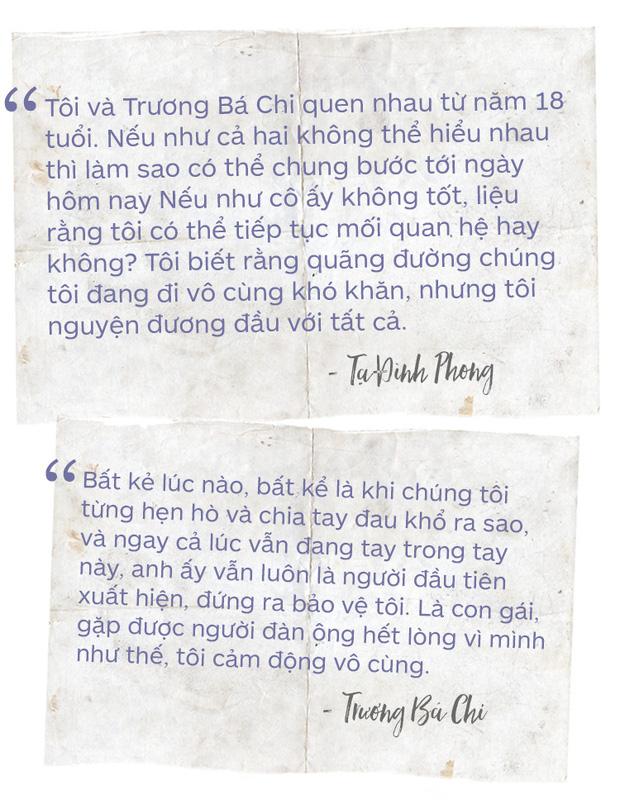 “ Tôi và Trương Bá Chi quen nhau từ năm 18
tuổi. Nếu như cả hai không thể hiểu nhau
thì làm sao có thể chung bước tới ngày
hôm nay Nếu như cô ấy không tốt, liệu
rằng tôi có thể tiếp tục mối quan hệ hay
không? Tôi biết rằng quãng đường chúng
tôi đang đi vô cùng khó khăn, nhưng tôi
nguyện đương đầu với tất cả.
- Tạ Đình Phong
“ Bất kẻ lúc nào, bất kể là khi chúng tôi
từng hẹn hò và chia tay đau khổ ra sao,
và ngay cả lúc vẫn đang tay trong tay
này, anh ấy vẫn luôn là người đầu tiên
xuất hiện, đứng ra bảo vệ tôi. Là con gái,
gặp được người đàn ông hết lòng vì mình
như thế, tôi cảm động vô cùng.
- Trương Bá Chi